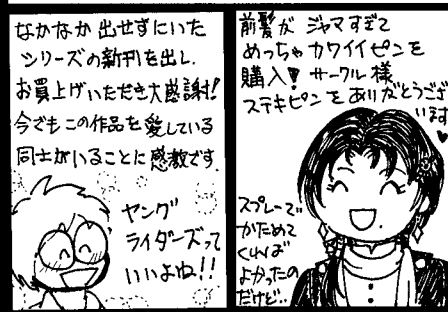 なかなか出せずにいた
シリーズの新刊を出し、
お買上げいただき大感謝!
今でもこの作品を愛している
同士がいることに感激です。
ヤング
ライダーズって
いいよね!!
前髪がジャマすぎて
めっちゃカワイイピンを
購入♥ サークル様
ステキピンをありがとうござ
います♥
スプレーで
かためて
くれば
よかったの
だけど…